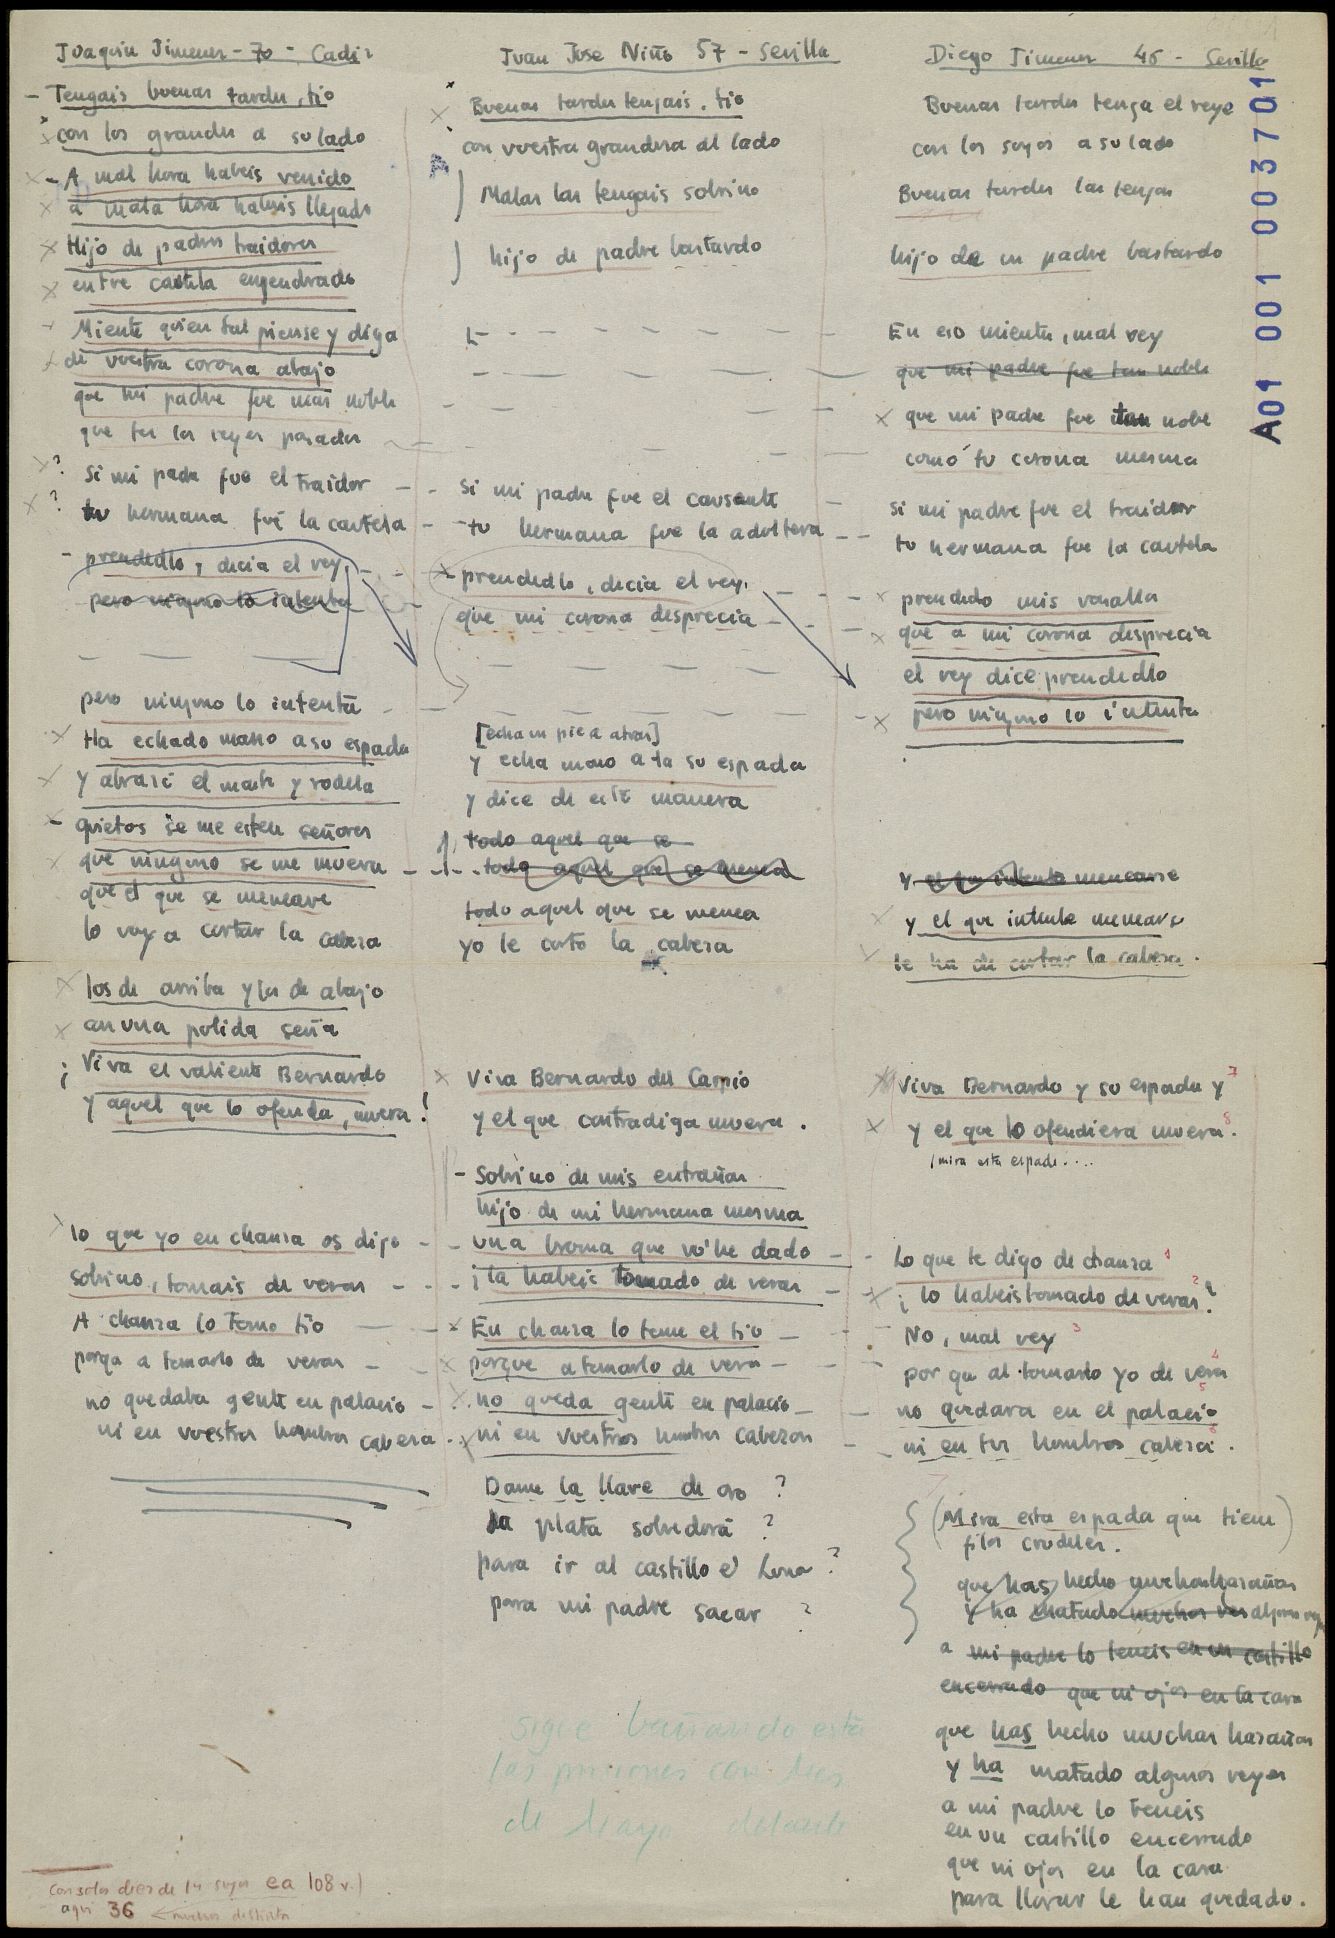 Joaquin Jimenez - 70 - Cadiz
- Tengais buenas tardes, tio
con los grandes a su lado
- A mal hora habeis venido
a mala hora habeis llegado
Hijo de padres traidores
entre cautela engendrado
Miente quien tal piense y diga
de vuestra corona abajo
que mi padre fue mas noble
que tus los reyes pasados
? Si mi padre fue el traidor
? tu hermana fue la cautela
- prendedlo, decia el rey,
pero ninguno lo intenta
pero ninguno lo intenta
Ha echado mano a su espada
y abrasé el mante y rodella
- quietos se me esten señores
que ninguno se me mueva
que el que se meneare
lo voy a cortar la cabeza
los de arriba y los de abajo
an una polida seña
¡ Viva el valiente Bernardo
y aquel que lo ofenda, muera!
lo que yo en chanza os digo
sobrino, tomais de veras
A chanza lo tomo tio
porqa a tomarlo de veras
no quedaba gente en palacio
ni en vuestros hombros cabeza
con solos diez de los suyos ea 108 v.)
aqui 36
Juan Jose Niño 57 - Sevilla
Buenas tardes tengais, tio
con vuestra grandeza al lado
Malas las tengais sobrino
hijo de padre bastardo
Si mi padre fue el causante
- tu hermana fue la adultera
- prendedlo, decia el rey,
que mi corona desprecia
[echa un pie a atras]
y echa mano a la su espada
y dice de este manera
todo aquel que se
todo aquel que se menea
todo aquel que se menea
yo le corto la cabeza
Viva Bernardo del Carpio
y el que contradiga muera.
- Sobrino de mis entrañas
hijo de mi hermana mesma
una broma que vo'he dado
¡la habeis tomado de veras
- En chanza lo tome el tio
porque a tomarlo de vera
no queda gente en palacio
ni en vuestros hombros cabezas
Dame la llave de oro ?
la plata sobredorá ?
para ir al castillo e' Luna ?
para mi padre sacar ?
sigue bañando está
las prisiones con
de delante
Diego Jimenez 46 - Sevilla
Buenas tardes tenga el reye
con los suyos a su lado
Buenas tardes las tengas
hijo de un padre bastardo
En eso mientes, mal rey
que mi padre fue tan noble
que mi padre fue tan noble
como tu corona mesma
si mi padre fue el traidor
tu hermana fue la cautela
prendedo mis vasallos
que a mi corona desprecia
el rey dice prendedlo
pero ninguno lo intenta
y el que intente menearse
y el que intente menearse
le ha de cortar la cabeza.
Viva Bernardo y su espada y 7
y el que lo ofendiera muera. 8
/mira esta espada....
Lo que te digo de chanza 1
¡ lo habeis tomado de veras? 2
No, mal rey 3
por que al tomarlo yo de vera 4
no quedara en el palacio 5
ni en tus hombros cabeza 6.
(Mira esta espada que tiene)
filos crudeles.
que has hecho muchas hazañas
y ha matado muchos res algunos reyes
a mi padre lo teneis en un castillo
encerrado que ni ojos en la cara
que has hecho muchas hazañas
y ha matado algunos reyes
a mi padre lo teneis
en un castillo encerrado
que ni ojos en la cara
para llorar le han quedado.
A01 001 003701